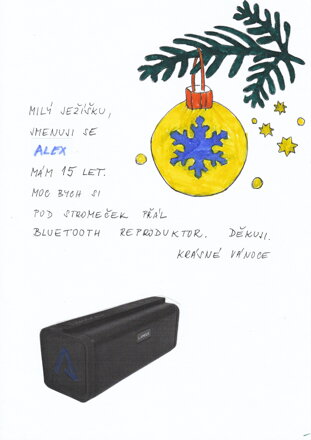 MILÝ JEŽÍŠKU,
JMENUJI SE
ALEX
MÁM 15 LET.
MOC BYCH SI
POD STROMEČEK PŘÁL
BLUETOOTH REPRODUKTOR. DĚKUJI.
KRÁSNÉ VÁNOCE